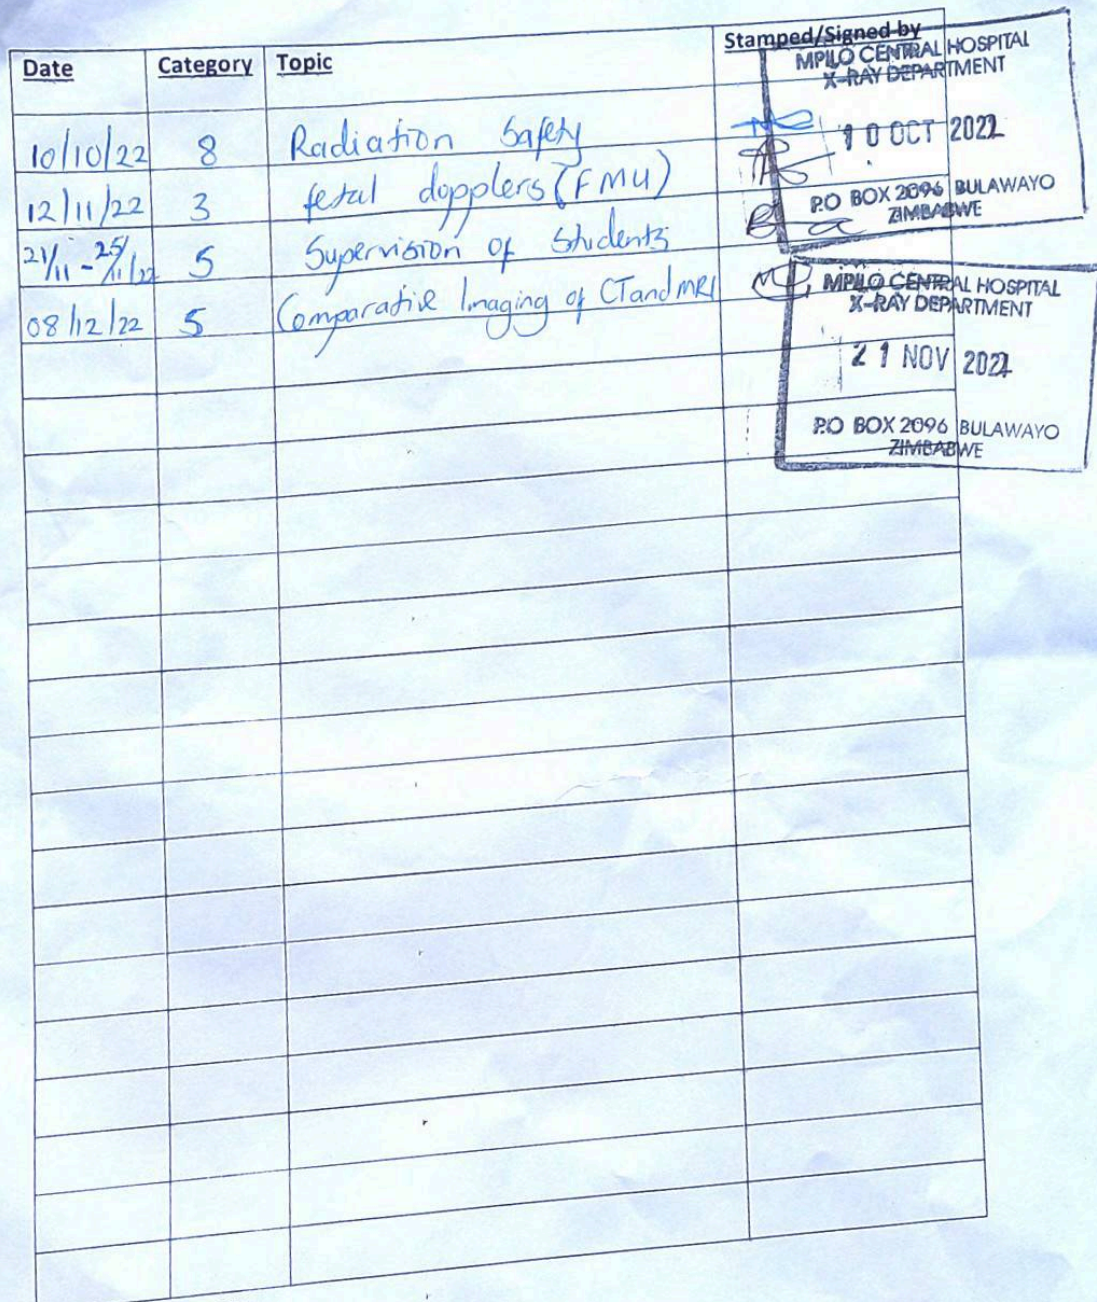 Date Category Topic Stamped/Signed by
MPILO CENTRAL HOSPITAL
X-RAY DEPARTMENT
10 OCT 2022
P.O BOX 2096 BULAWAYO
ZIMBABWE
10/10/22 8 Radiation Safety
12/11/22 3 fetal dopplers (FMU)
21/11 - 25/11/22 5 Supervision of Students
08/12/22 5 Comparative Imaging of CT and MRI
MPILO CENTRAL HOSPITAL
X-RAY DEPARTMENT
21 NOV 2022
P.O BOX 2096 BULAWAYO
ZIMBABWE